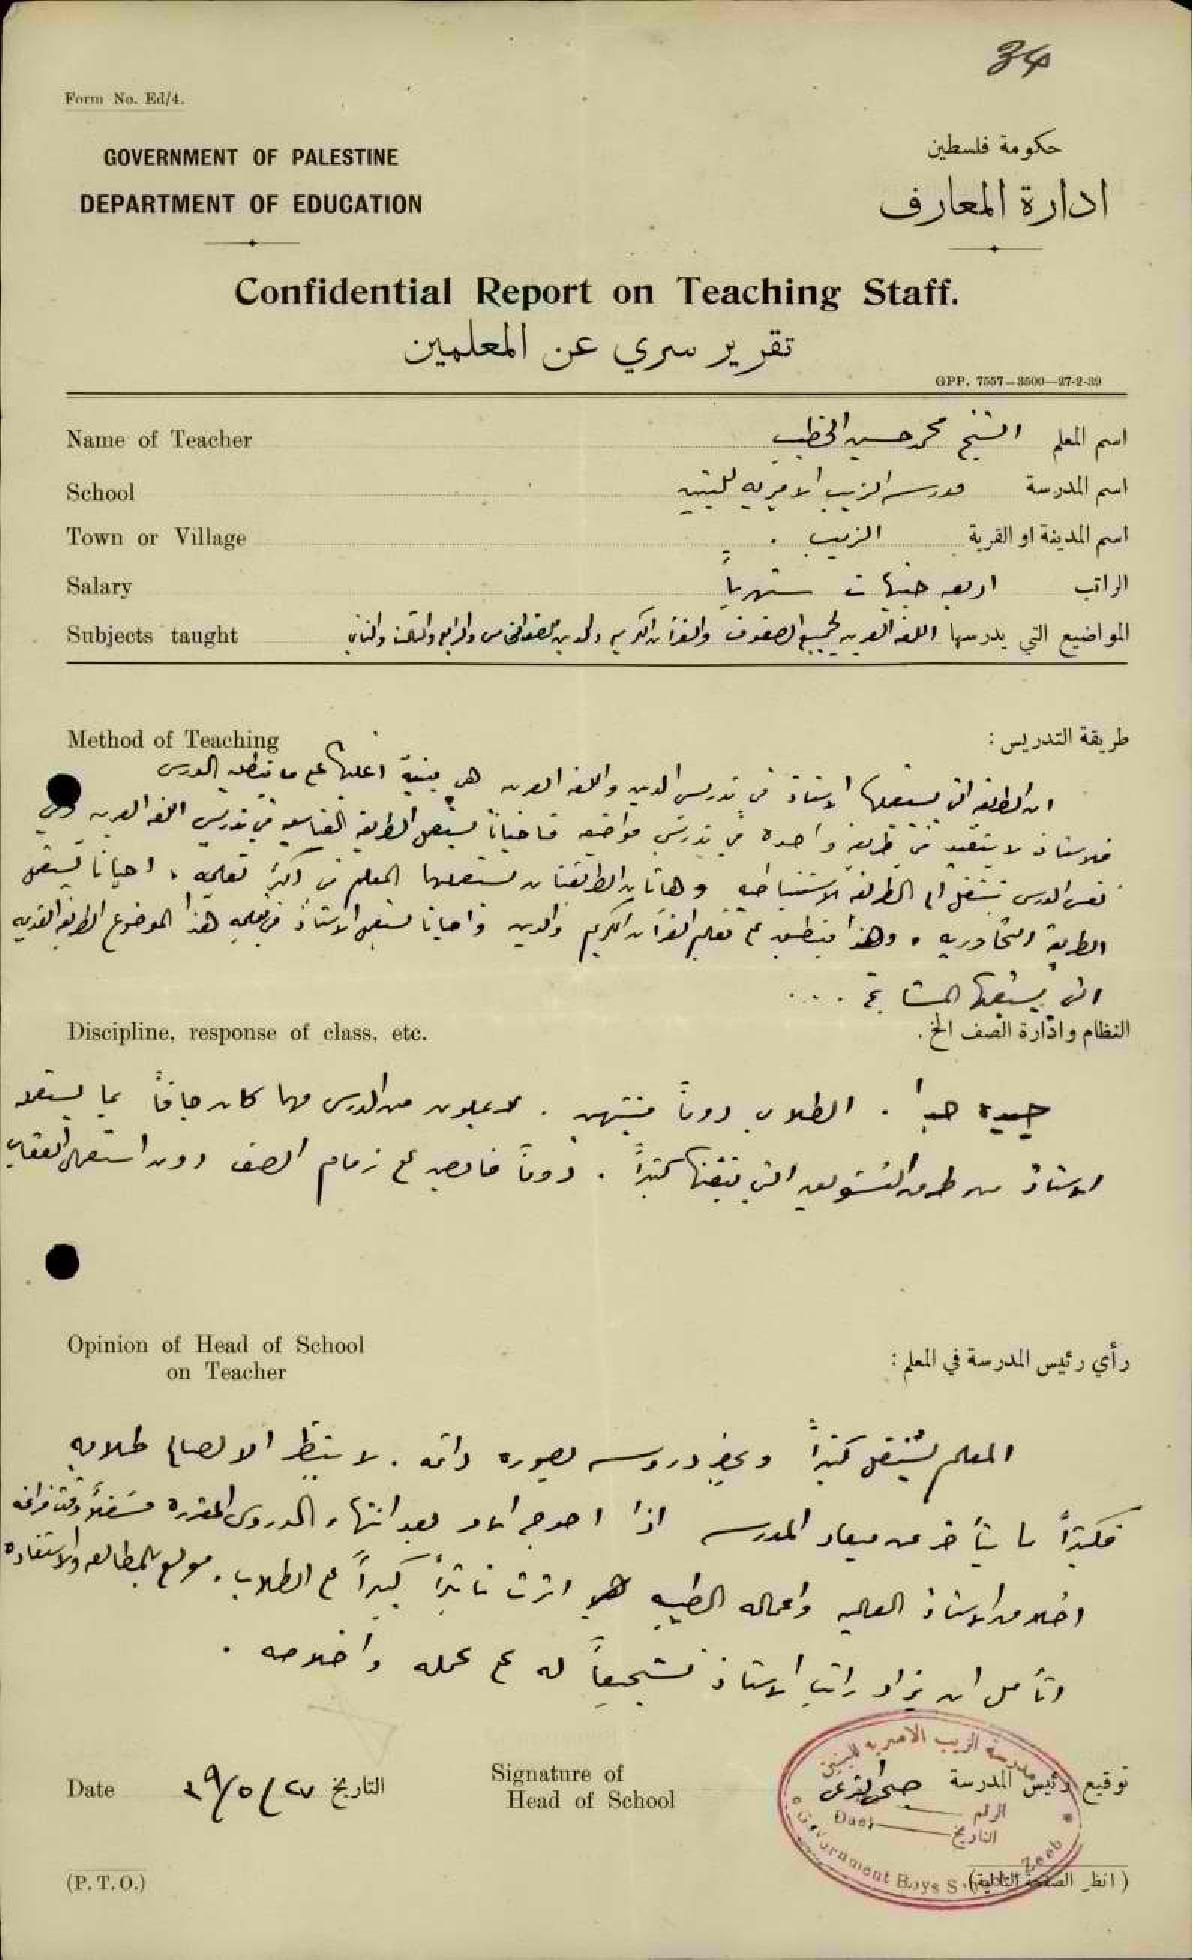 34
Form No. Ed/4.
GOVERNMENT OF PALESTINE
حكومة فلسطين
DEPARTMENT OF EDUCATION
ادارة المعارف
Confidential Report on Teaching Staff.
تقرير سري عن المعلمين
GPP. 7557—3500—27-2-39
Name of Teacher الشيخ محمد حسين الخطيب اسم المعلم
School مدرسة الزيب الاميرية للبنين اسم المدرسة
Town or Village الزيب . اسم المدينة او القرية
Salary اربعة جنيهات شهرياً الراتب
Subjects taught المواضيع التي يدرسها اللغة العربية لجميع الصفوف والقرآن الكريم والدين للصفوف الخامس والرابع والثالث والثاني
Method of Teaching طريقة التدريس :
ان الطريقة التي يستعملها الاستاذ في تدريس الدين واللغة العربية هي مبنية اغلبها على ما يتطلبه الدرس
فالاستاذ لا يتقيد في طريقة واحدة في تدريس مواضيعه فاحياناً يستعمل الطريقة القياسية في تدريس اللغة العربية وفي
نفس الدرس ينتقل الى الطريقة الاستنباطية وهاتان الطريقتان يستعملهما المعلم في اكثر تعليمه . احياناً يستعمل
الطريقة المحاورية . وهذا ينطبق على تعليم القرآن الكريم والدين واحياناً يستعمل الاستاذ في تعليمه هذا الموضوع الطريقة القديمة
التي يستعملها المشايخ ....
Discipline, response of class, etc. النظام وادارة الصف الخ.
جيدة جداً . الطلاب دوماً منتبهين . لا يملون من الدرس مهما كان جافاً بما يستعمله
الاستاذ من طرق التشويق التي يتقنها كثيراً . دوماً قابض على زمام الصف دون استعمال العقاب
Opinion of Head of School
on Teacher
رأي رئيس المدرسة في المعلم :
المعلم يشتغل كثيراً ويحضر دروسه بصورة دائمة . لا ينتظر الا لصالح طلابه
فكثيراً ما يتأخر عن ميعاد المدرسة اذا احوج الامر بعد انتهاء الدروس المقررة مستغلاً وقت فراغه
اخلاق الاستاذ العالية واعماله الطيبة اثرت تأثيراً كبيراً على الطلاب . مولع بالمطالعة والاستفادة
اتأمل ان يزاد راتب الاستاذ تشجيعاً له على عمله واخلاصه .
Date ٢٧/٥/٣٩ التاريخ
Signature of
Head of School
توقيع رئيس المدرسة
مدرسة الزيب الاميرية للبنين
الرقم
Date التاريخ
Government Boys School Zeeb
(P.T.O.)
(انظر الصفحة التالية)